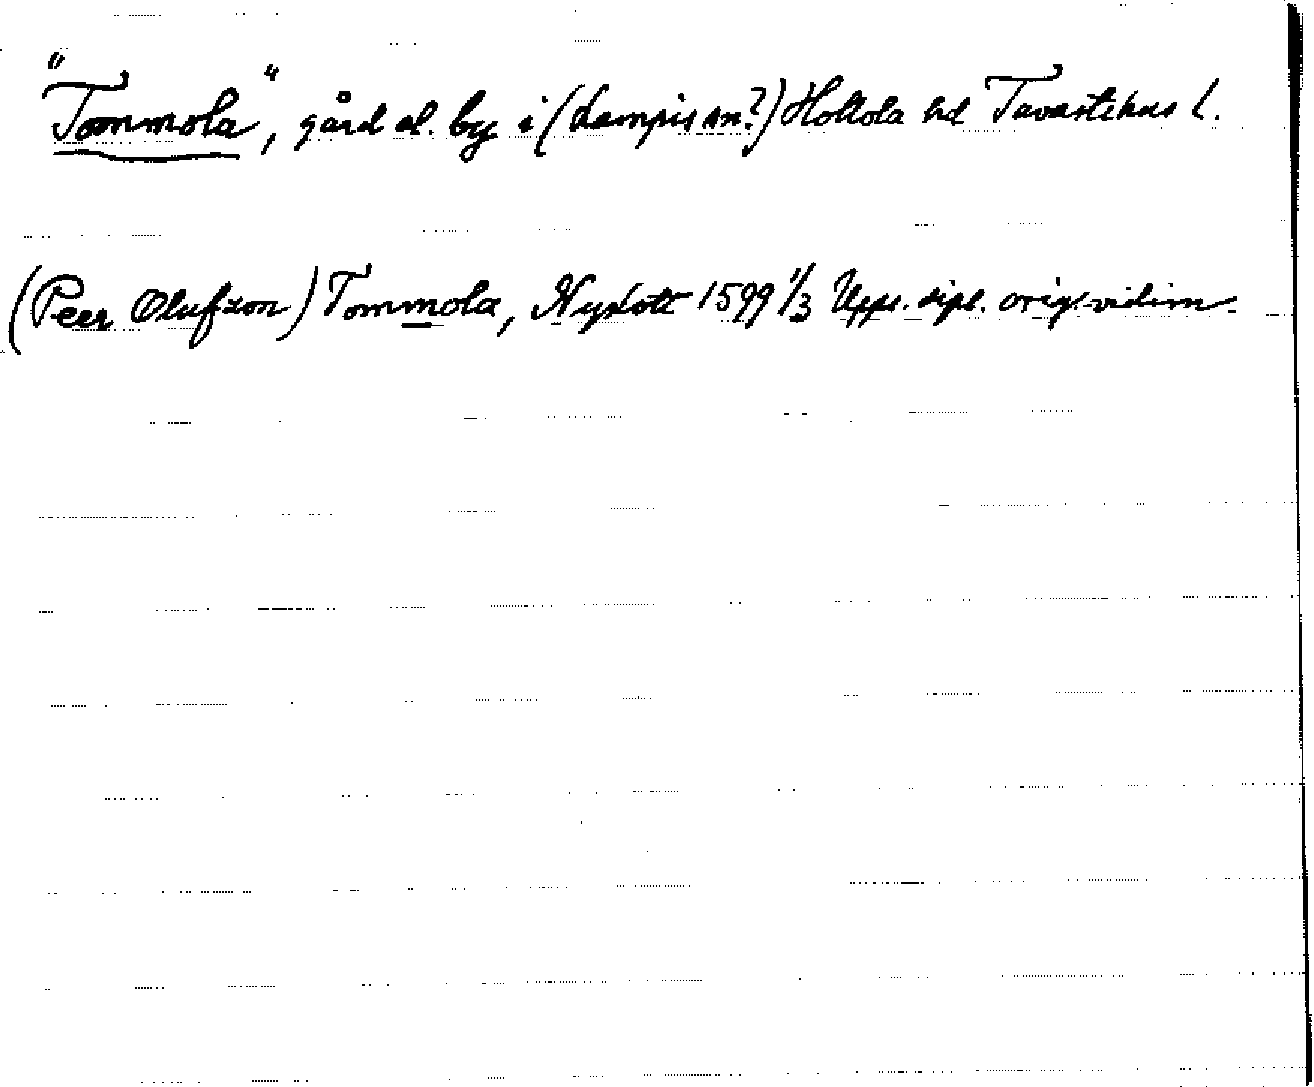 "Tommola", gård el. by i (Lampis sn?) Hollola hd Tavastehus l.
(Peer Olufzon) Tommola, Nyslott 1599 1/3 Upps. dipl. orig. vidim.